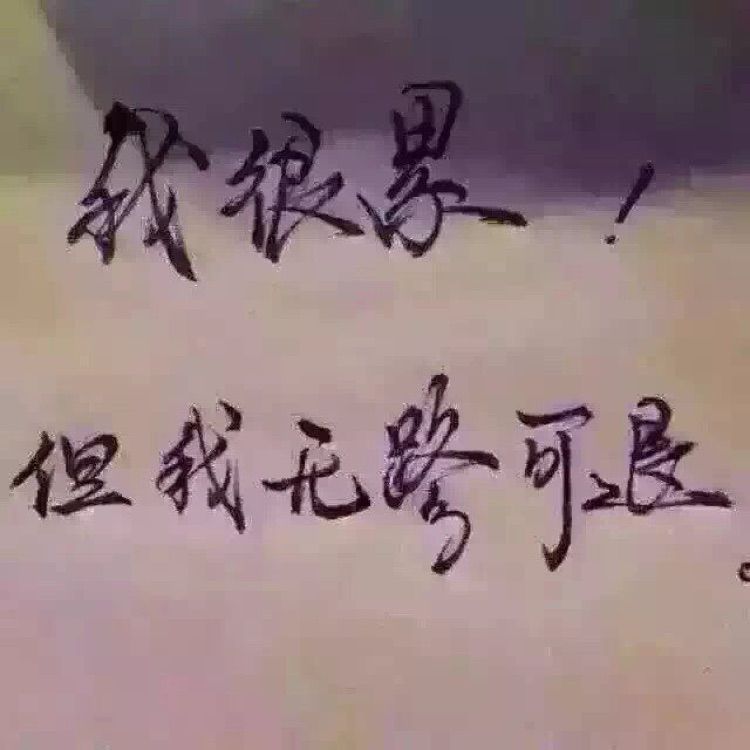 我很累！
但我无路可退。